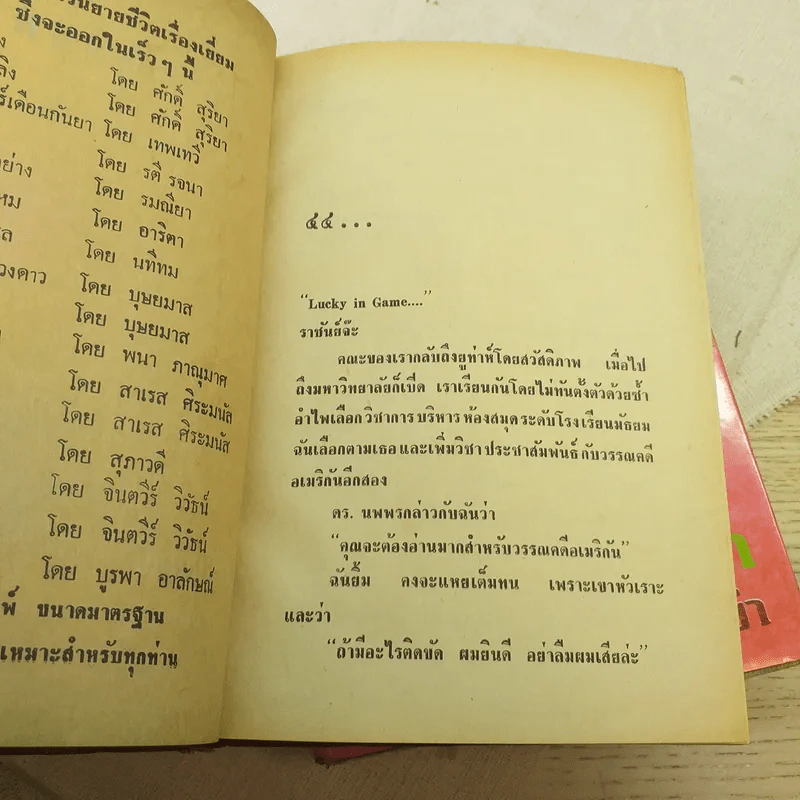 นยายชีวิตเรื่องเยี่ยม
ซึ่งจะออกในเร็ว ๆ นี้
โดย ศักดิ์ สุริยา
โดย ศักดิ์ สุริยา
ร์เดือนกันยา โดย เทพเทวี
โดย รตี รจนา
ย่าง โดย รมณียา
หม โดย อาริตา
ล โดย นทีทม
วงดาว โดย บุษยมาส
โดย บุษยมาส
โดย พนา ภาณุมาศ
โดย สาเรส ศิระมนัส
โดย สาเรส ศิระมนัส
โดย สุภาวดี
โดย จินตวีร์ วิวัธน์
โดย จินตวีร์ วิวัธน์
โดย บูรพา อาลักษณ์
พ์ ขนาดมาตรฐาน
เหมาะสำหรับทุกท่าน
๔๔...
“Lucky in Game....”
ราชันย์จ๊ะ
คณะของเรากลับถึงยูท่าห์โดยสวัสดิภาพ เมื่อไป
ถึงมหาวิทยาลัยก็เปิด เราเรียนกันโดยไม่ทันตั้งตัวด้วยซ้ำ
อำไพเลือกวิชาการบริหารห้องสมุดระดับโรงเรียนมัธยม
ฉันเลือกตามเธอ และเพิ่มวิชา ประชาสัมพันธ์ กับวรรณคดี
อเมริกันอีกสอง
ดร. นพพรกล่าวกับฉันว่า
“คุณจะต้องอ่านมากสำหรับวรรณคดีอเมริกัน”
ฉันยิ้ม คงจะแหยเต็มทน เพราะเขาหัวเราะ
และว่า
“ถ้ามีอะไรติดขัด ผมยินดี อย่าลืมผมเสียล่ะ”